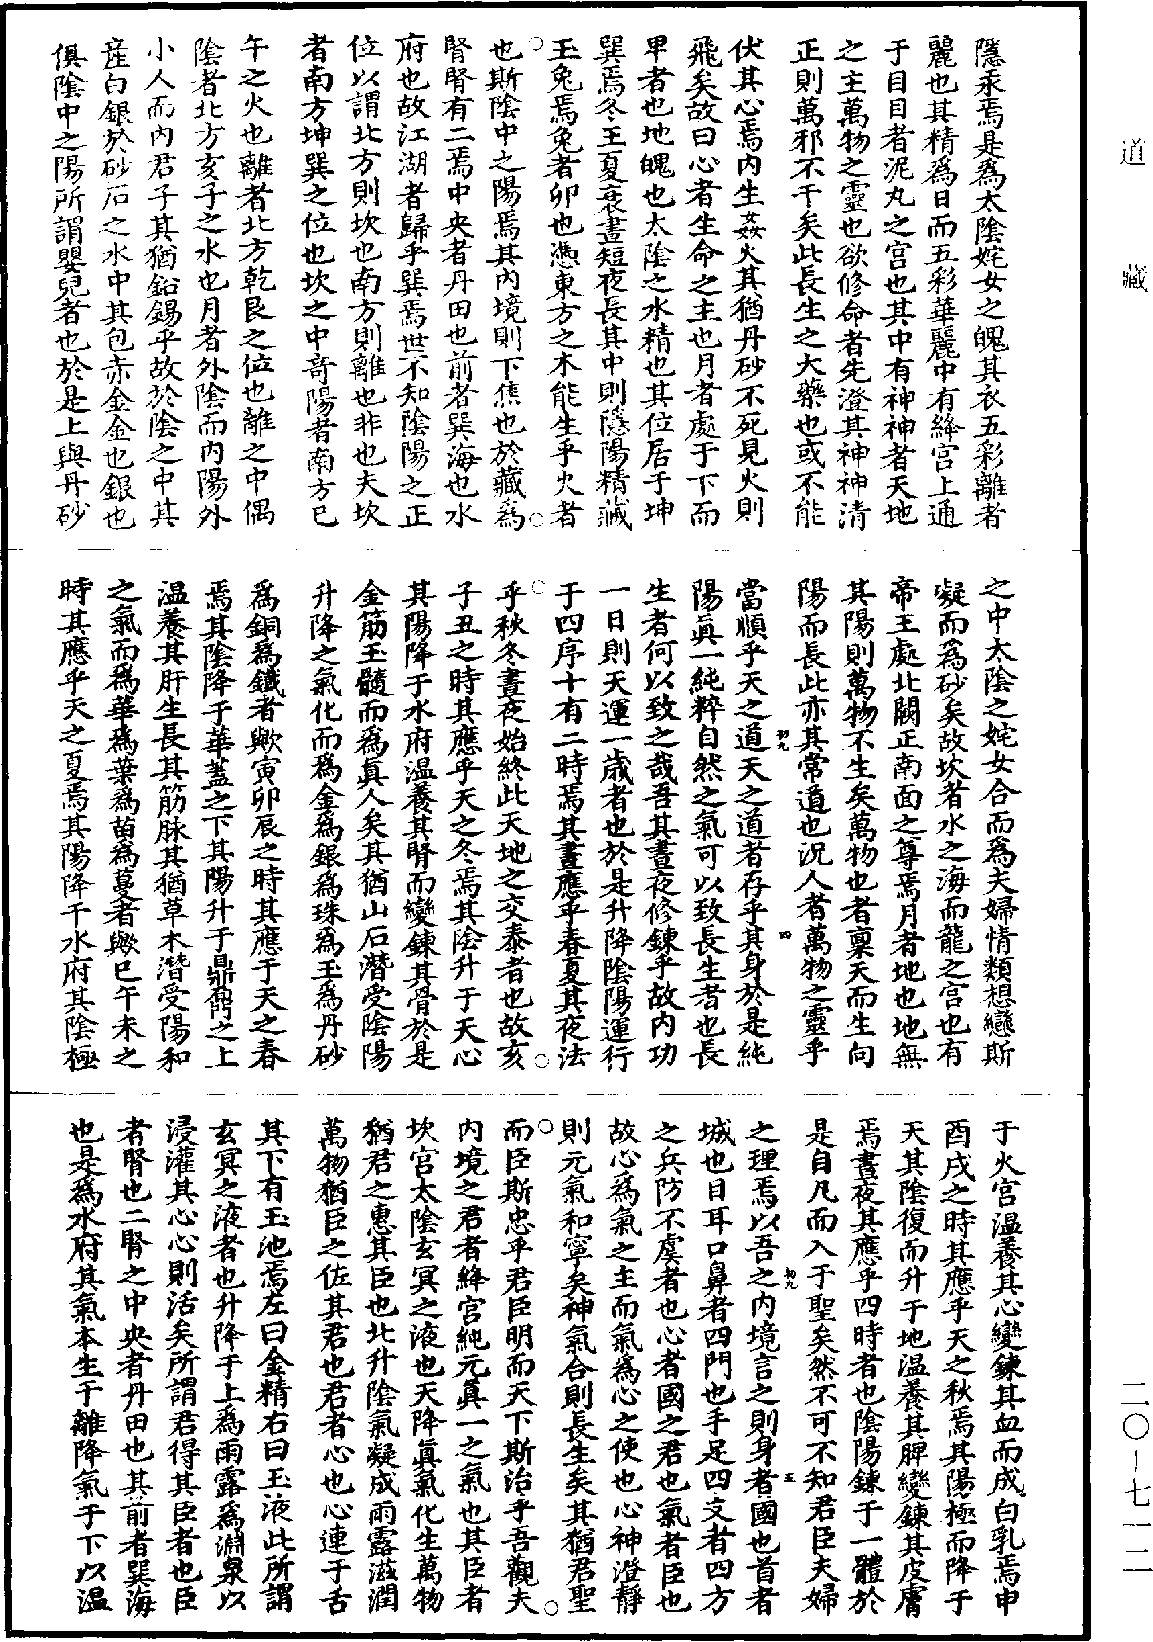 道藏
隱汞焉是爲太陰姹女之魄其衣五彩離者
麗也其精爲日而五彩華麗中有絳宮上通
于目目者泥丸之宮也其中有神神者天地
之主萬物之靈也欲修命者先澄其神神清
正則萬邪不干矣此長生之大藥也或不能
伏其心焉內生姦火其猶丹砂不死見火則
飛矣故曰心者生命之主也月者處于下而
卑者也地魄也太陰之水精也其位居于坤
巽焉冬王夏衰晝短夜長其中則隱陽精藏
玉兔焉兔者卯也憑東方之木能生乎火者
也斯陰中之陽焉其內境則下焦也於藏爲
腎腎有二焉中央者丹田也前者巽海也水
府也故江湖者歸乎巽焉世不知陰陽之正
位以謂北方則坎也南方則離也非也夫坎
者南方坤巽之位也坎之中奇陽者南方巳
午之火也離者北方乾艮之位也離之中偶
陰者北方亥子之水也月者外陰而內陽外
小人而內君子其猶鉛錫乎故於陰之中其
產白銀於砂石之水中其包赤金金也銀也
俱陰中之陽所謂嬰兒者也於是上與丹砂
之中太陰之姹女合而爲夫婦情類想戀斯
凝而爲砂矣故坎者水之海而龍之宮也有
帝王處北闕正南面之尊焉月者地也地無
其陽則萬物不生矣萬物也者稟天而生向
陽而長此亦其常道也況人者萬物之靈乎
當順乎天之道天之道者存乎其身於是純
陽眞一純粹自然之氣可以致長生者也長
生者何以致之哉吾其晝夜修鍊乎故內功
一日則天運一歲者也於是升降陰陽運行
于四序十有二時焉其晝應乎春夏其夜法
乎秋冬晝夜始終此天地之交泰者也故亥
子丑之時其應乎天之冬焉其陰升于天心
其陽降于水府温養其腎而變鍊其骨於是
金筋玉髓而爲眞人矣其猶山石潛受陰陽
升降之氣化而爲金爲銀爲珠爲玉爲丹砂
爲銅爲鐵者歟寅卯辰之時其應于天之春
焉其陰降于華蓋之下其陽升于鼎鬲之上
温養其肝生長其筋脉其猶草木潛受陽和
之氣而爲華爲葉爲苗爲蔓者歟巳午未之
時其應乎天之夏焉其陽降于水府其陰極
于火宮温養其心變鍊其血而成白乳焉申
酉戌之時其應乎天之秋焉其陽極而降于
天其陰復而升于地温養其脾變鍊其皮膚
焉晝夜其應乎四時者也陰陽鍊于一體於
是自凡而入于聖矣然不可不知君臣夫婦
之理焉以吾之內境言之則身者國也首者
城也目耳口鼻者四門也手足四支者四方
之兵防不虞者也心者國之君也氣者臣也
故心爲氣之主而氣爲心之使也心神澄靜
則元氣和寧矣神氣合則長生矣其猶君聖
而臣斯忠乎君臣明而天下斯治乎吾觀夫
內境之君者絳宮純元眞一之氣也其臣者
坎宮太陰玄冥之液也天降眞氣化生萬物
猶君之惠其臣也北升陰氣凝成雨露滋潤
萬物猶臣之佐其君也君者心也心連于舌
其下有玉池焉左曰金精右曰玉液此所謂
玄冥之液者也升降于上爲雨露爲淵泉以
浸灌其心心則活矣所謂君得其臣者也臣
者腎也二腎之中央者丹田也其前者巽海
也是爲水府其氣本生于離降氣于下以温
初九
四
初九
五
二〇—七一二